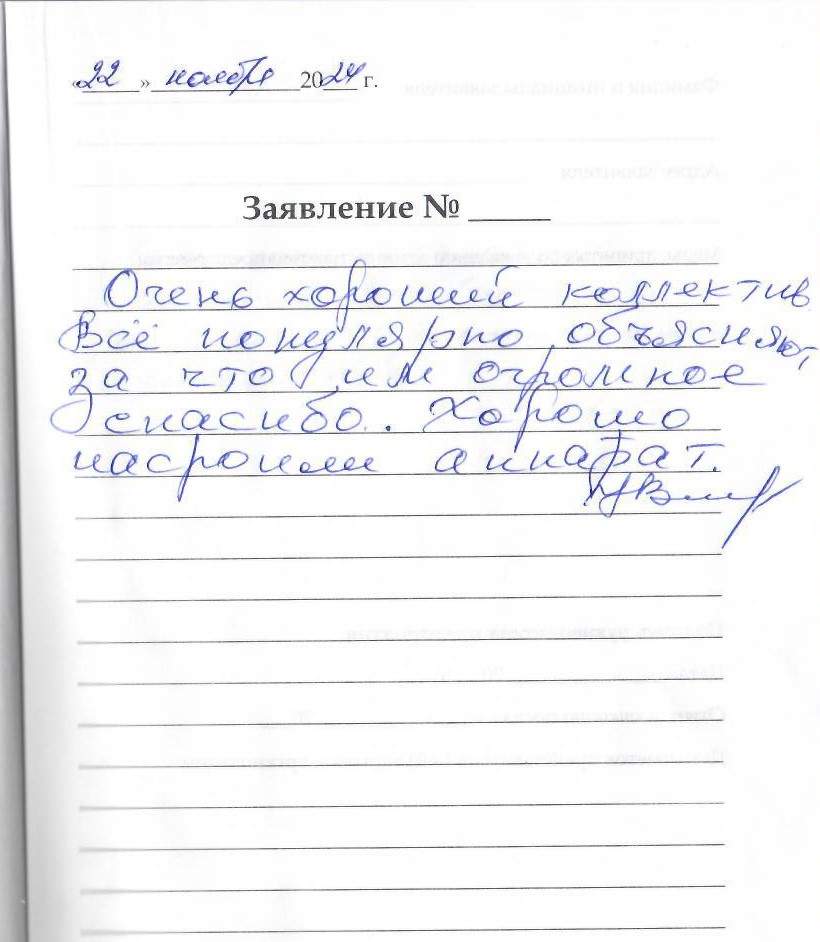 «22» ноября 2024 г.
Заявление № _____
Очень хороший коллектив
Всё популярно объясняют,
за что им огромное
спасибо. Хорошо
насроили аппарат.